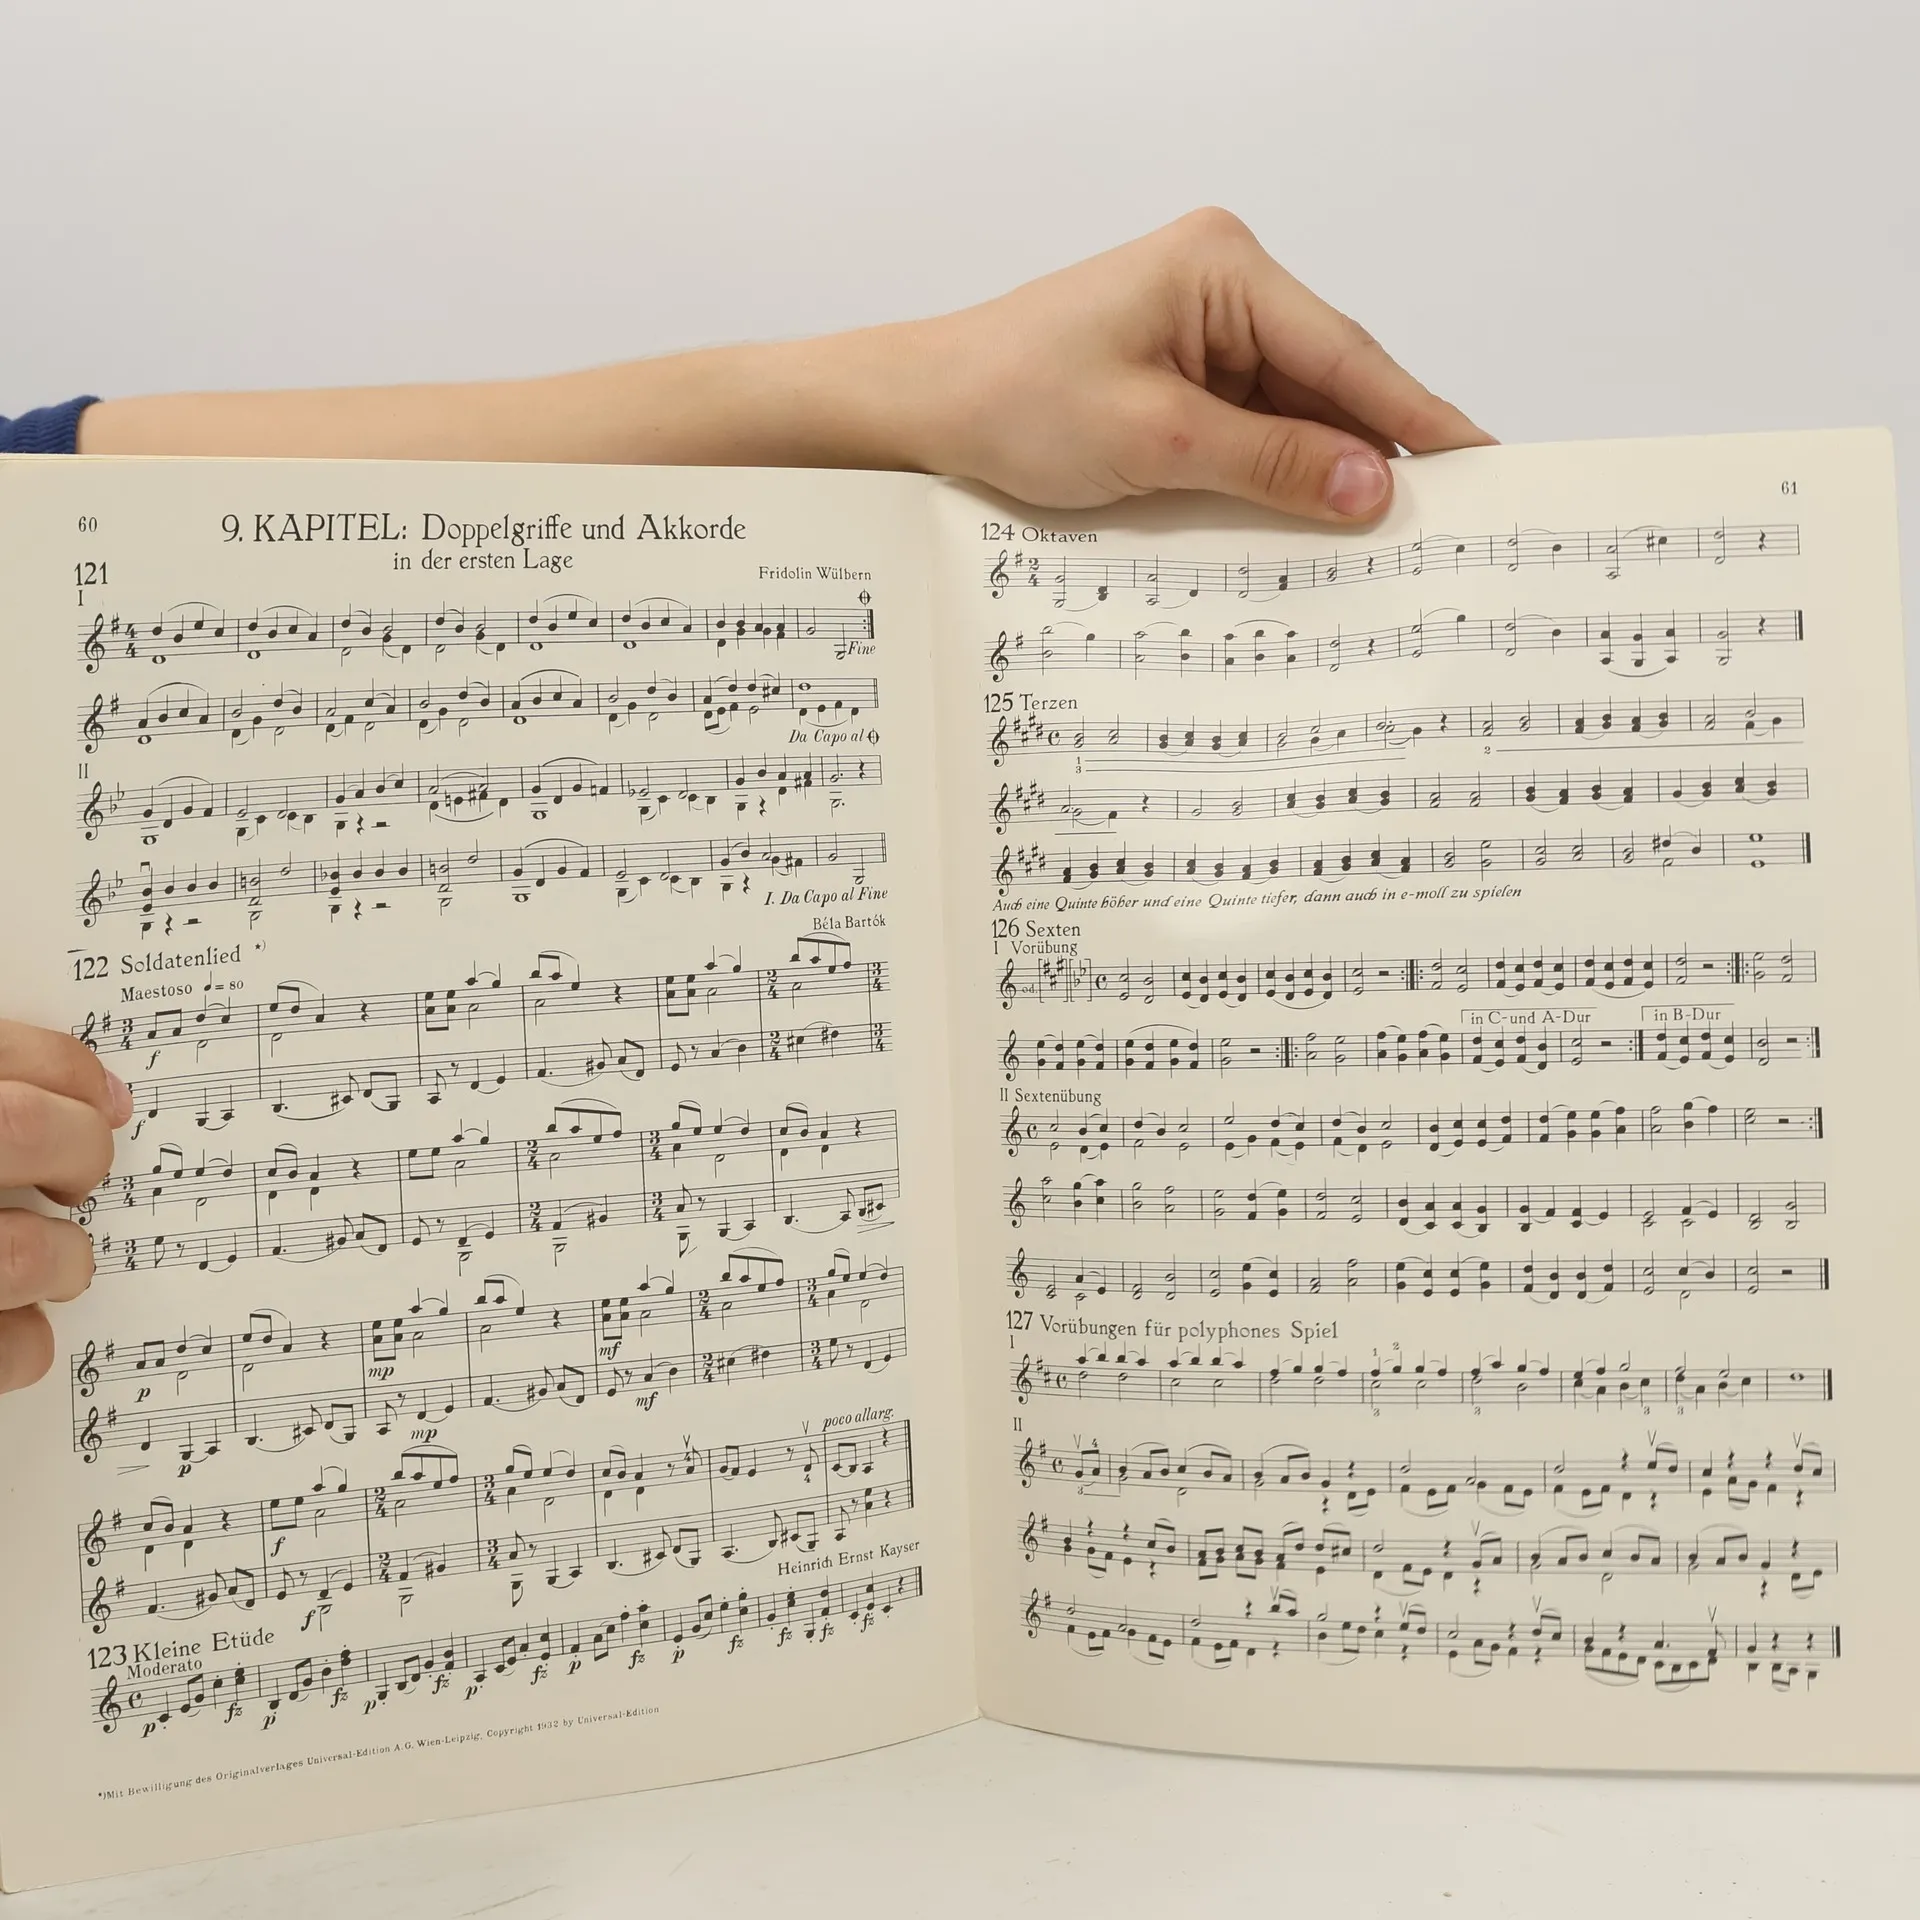 60
9. KAPITEL: Doppelgriffe und Akkorde
in der ersten Lage
121
Fridolin Wülbern
I
Fine
Da Capo al
II
I. Da Capo al Fine
Béla Bartók
122 Soldatenlied *)
Maestoso = 80
f
f
p
mp
mf
p
mp
mf
poco allarg.
f
f
Heinrich Ernst Kayser
123 Kleine Etüde
Moderato
p fz p fz p fz p fz p fz p fz fz fz fz
*) Mit Bewilligung des Originalverlages Universal-Edition A. G. Wien-Leipzig, Copyright 1932 by Universal-Edition
61
124 Oktaven
125 Terzen
1
3
2
Auch eine Quinte höher und eine Quinte tiefer, dann auch in e-moll zu spielen
126 Sexten
I Vorübung
od.
in C- und A-Dur
in B-Dur
II Sextenübung
127 Vorübungen für polyphones Spiel
I
1 2
3 3 3 3
II
4
3